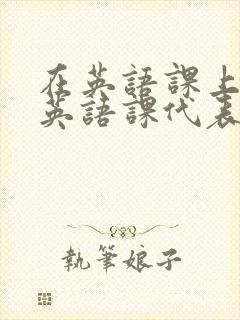 在英語課上
英語課代表
執筆娘子